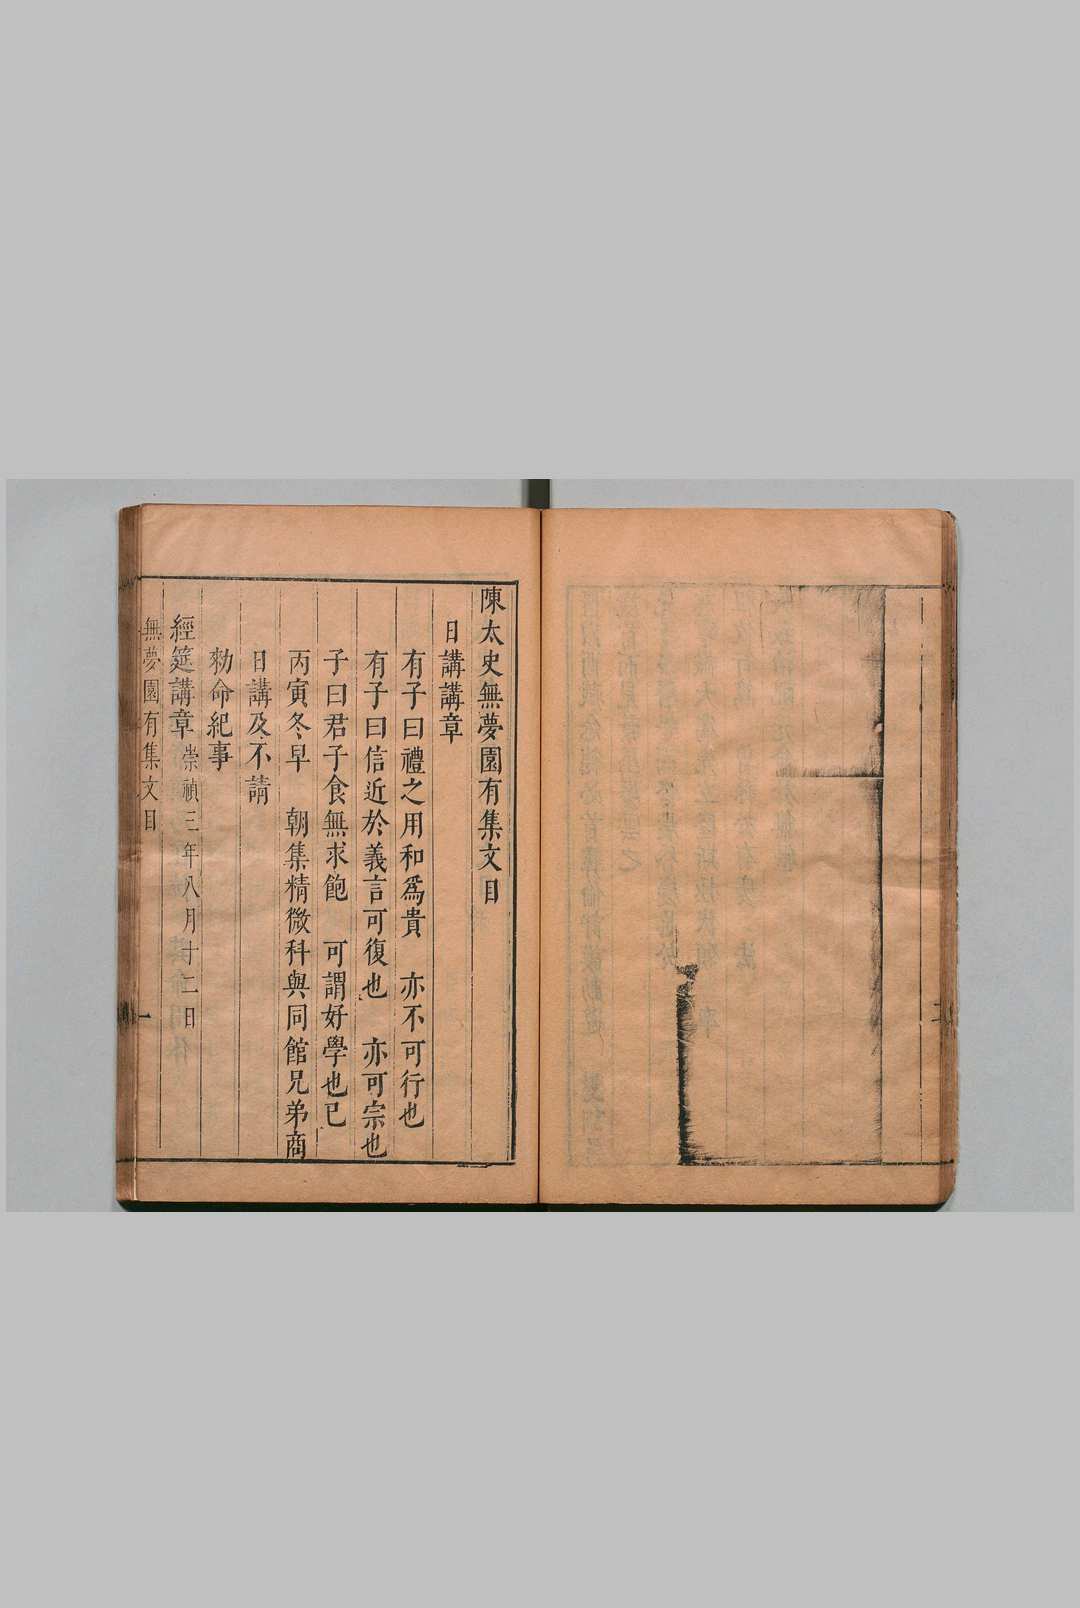 陳太史無夢園有集文目
日講講章
有子曰禮之用和爲貴　亦不可行也
有子曰信近於義言可復也　亦可宗也
子曰君子食無求飽　可謂好學也已
丙寅冬早　朝集精微科與同館兄弟商
日講及不請
勑命紀事
經筵講章崇禎三年八月十二日
無夢園有集文目　一